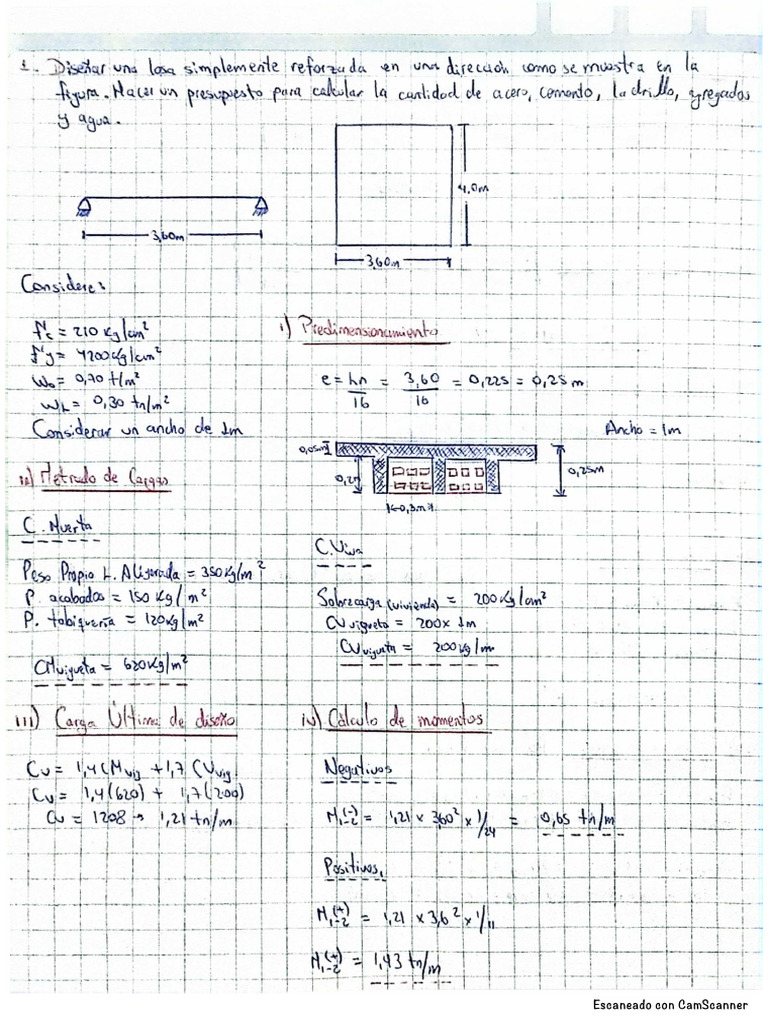 1. Diseñar una losa simplemente reforzada en una dirección como se muestra en la
figura. Hacer un presupuesto para calcular la cantidad de acero, cemento, ladrillo, agregados
y agua.
4,0m
3,60m
3,60m
Considere:
f'c = 210 Kg/cm²
f'y = 4200Kg/cm²
W₀ = 0,70 t/m²
WL = 0,30 tn/m²
Considerar un ancho de 1m
i) Predimensionamiento
e = Ln/16 = 3,60/16 = 0,225 = 0,25 m
Ancho = 1m
0,05m
0,2m
0,25m
0,3m
ii) Metrado de Cargas
C. Muerta
Peso Propio L. Aligerada = 350Kg/m²
P. acabados = 150 Kg/m²
P. tabiquería = 120Kg/m²
CMvigueta = 620Kg/m²
C.Viva
Sobrecarga (vivienda) = 200Kg/cm²
CVvigueta = 200 x 1m
CVvigueta = 200 Kg/m
iii) Carga Última de diseño
CU = 1,4 CMvig + 1,7 CVvig
CU = 1,4(620) + 1,7(200)
CU = 1208 → 1,21 tn/m
iv) Cálculo de momentos
Negativos
M₁₋₂(-) = 1,21 x 3,60² x 1/24 = 0,65 tn/m
Positivos,
M₁₋₂(+) = 1,21 x 3,6² x 1/11
M₁₋₂(+) = 1,43 tn/m
Escaneado con CamScanner